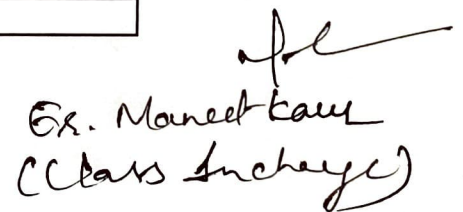 Er. Maneet Kaur
(Class Incharge)